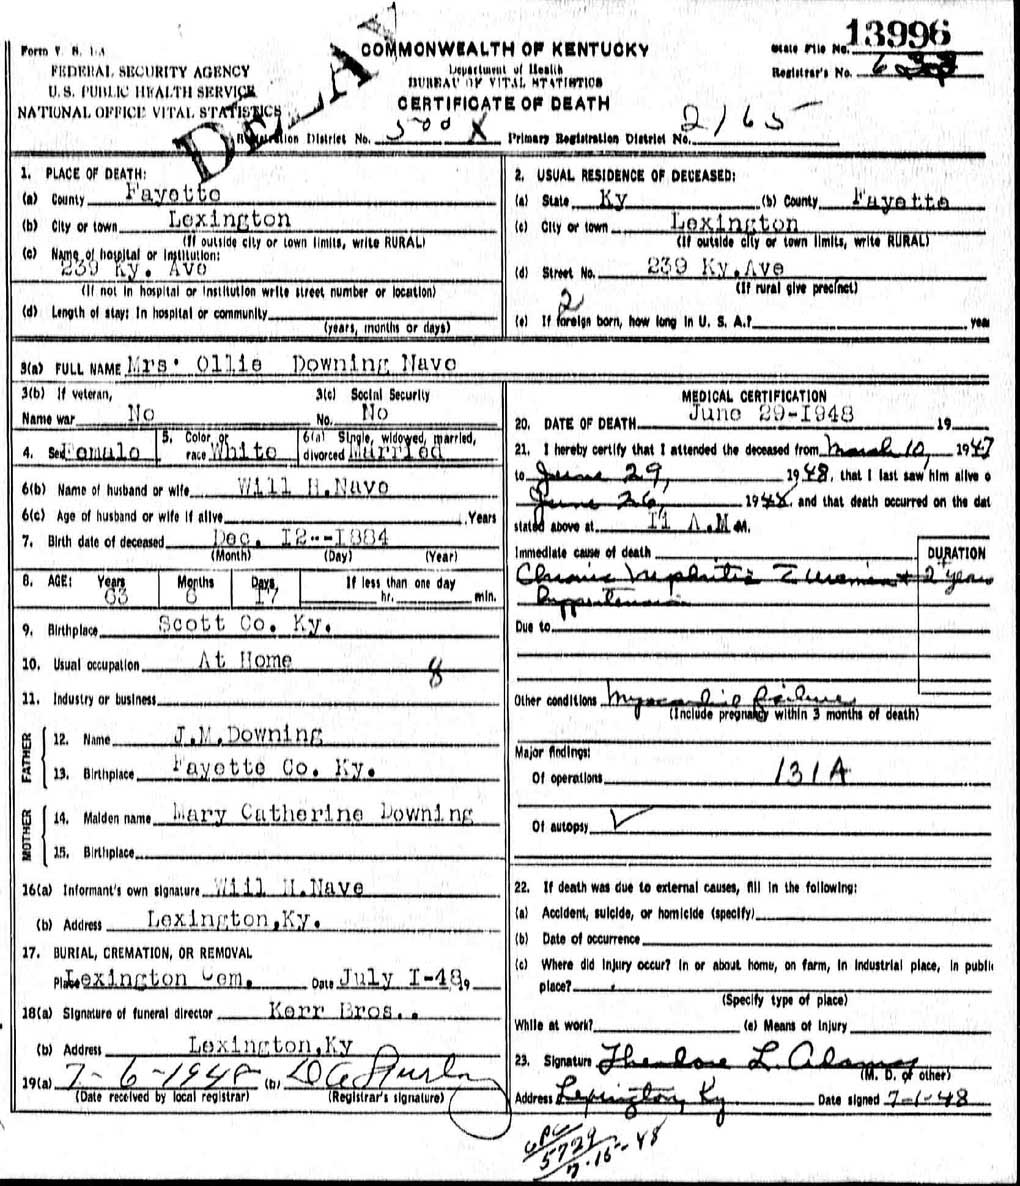 13996
DELAY
Form V. S. 1-A
COMMONWEALTH OF KENTUCKY
State File No.
FEDERAL SECURITY AGENCY
Department of Health
Registrar's No.
U. S. PUBLIC HEALTH SERVICE
BUREAU OF VITAL STATISTICS
NATIONAL OFFICE VITAL STATISTICS
CERTIFICATE OF DEATH
Registration District No. 500 X Primary Registration District No. 2165
1. PLACE OF DEATH:
(a) County Fayette
(b) City or town Lexington
(If outside city or town limits, write RURAL)
(c) Name of hospital or institution:
239 Ky. Ave
(If not in hospital or institution write street number or location)
(d) Length of stay: In hospital or community
(years, months or days)
2. USUAL RESIDENCE OF DECEASED:
(a) State Ky (b) County Fayette
(c) City or town Lexington
(If outside city or town limits, write RURAL)
(d) Street No. 239 Ky. Ave
(If rural give precinct)
2
(e) If foreign born, how long in U. S. A.? year
3(a) FULL NAME Mrs. Ollie Downing Nave
3(b) If veteran,
Name war No
3(c) Social Security
No. No
4. Sex Female
5. Color or
race White
6(a) Single, widowed, married,
divorced Married
6(b) Name of husband or wife Will H. Nave
6(c) Age of husband or wife if alive Years
7. Birth date of deceased Dec. I2--I884
(Month) (Day) (Year)
8. AGE: Years Months Days If less than one day
63 6 I7 hr. min.
9. Birthplace Scott Co. Ky.
10. Usual occupation At Home 8
11. Industry or business
FATHER
12. Name J.M.Downing
13. Birthplace Fayette Co. Ky.
MOTHER
14. Maiden name Mary Catherine Downing
15. Birthplace
16(a) Informant's own signature Will H.Nave
(b) Address Lexington,Ky.
17. BURIAL, CREMATION, OR REMOVAL
Place Lexington Cem. Date July I-48, 9
18(a) Signature of funeral director Kerr Bros..
(b) Address Lexington,Ky
19(a) 7-6-1948 (b)
(Date received by local registrar) (Registrar's signature)
MEDICAL CERTIFICATION
20. DATE OF DEATH June 29-1948 19
21. I hereby certify that I attended the deceased from March 10, 1947
to June 29, 1948, that I last saw him alive o
June 26, 1948, and that death occurred on the dat
stated above at 11 A.M M.
Immediate cause of death DURATION
Chronic Nephritis c̄ Uremia + 2+ years
hypertension
Due to
Other conditions Myocardial failure
(Include pregnancy within 3 months of death)
Major findings:
Of operations 131A
Of autopsy ✓
22. If death was due to external causes, fill in the following:
(a) Accident, suicide, or homicide (specify)
(b) Date of occurrence
(c) Where did injury occur? In or about home, on farm, in industrial place, in public
place?
(Specify type of place)
While at work? (e) Means of Injury
23. Signature Theodore L. Adams
(M. D. or other)
Address Lexington, Ky Date signed 7-1-48
5729
7-15-48